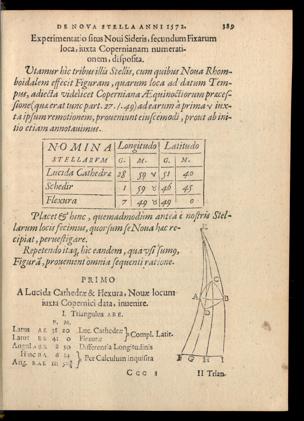 DE NOVA STELLA ANNI 1572. 389
Experimentatio situs Noui Sideris, secundum Fixarum
loca, iuxta Copernianam numerati-
onem, disposita.
Utamur hic tribus illis Stellis, cum quibus Noua Rhom-
boidalem effecit Figuram, quarum loca ad datum Tem-
pus, adiecta videlicet Coperniana Æquinoctiorum præces-
sione (quæ erat tunc part. 27. /.49) ad earum à prima ♈ iux-
ta ipsum remotionem, proueniunt eiuscemodi, prout ab ini-
tio etiam annotauimus.
NOMINA Longitudo Latitudo
STELLARVM G. M. G. M.
Lucida Cathedræ 28 59 ♈ 51 40
Schedir 1 59 ♉ 46 45
Flexura 7 49 ♉ 49 0
Placet & hinc, quemadmodum anteà è nostris Stel-
larum locis fecimus, quorsum se Noua hæc re-
cipiat, peruestigare.
Repetendo itaq, hic eandem, qua vsi sumq,
Figurã, prouenient omnia sequenti ratione.
PRIMO
A Lucida Cathedræ & Flexura, Nouæ locum
iuxta Copernici data, inuenire.
I. Triangulus ABE.
P. M.
Latus AE 38 20 Luc. Cathedræ
Latus 41 0 Flexuræ
Compl. Latit.
Angul 8 50 Differentia Longitudinis
Hinc 6 14
Ang. BAE
Per Calculum inquisita
A
B
D
C
F G H I
Ccc 3
II Trian.